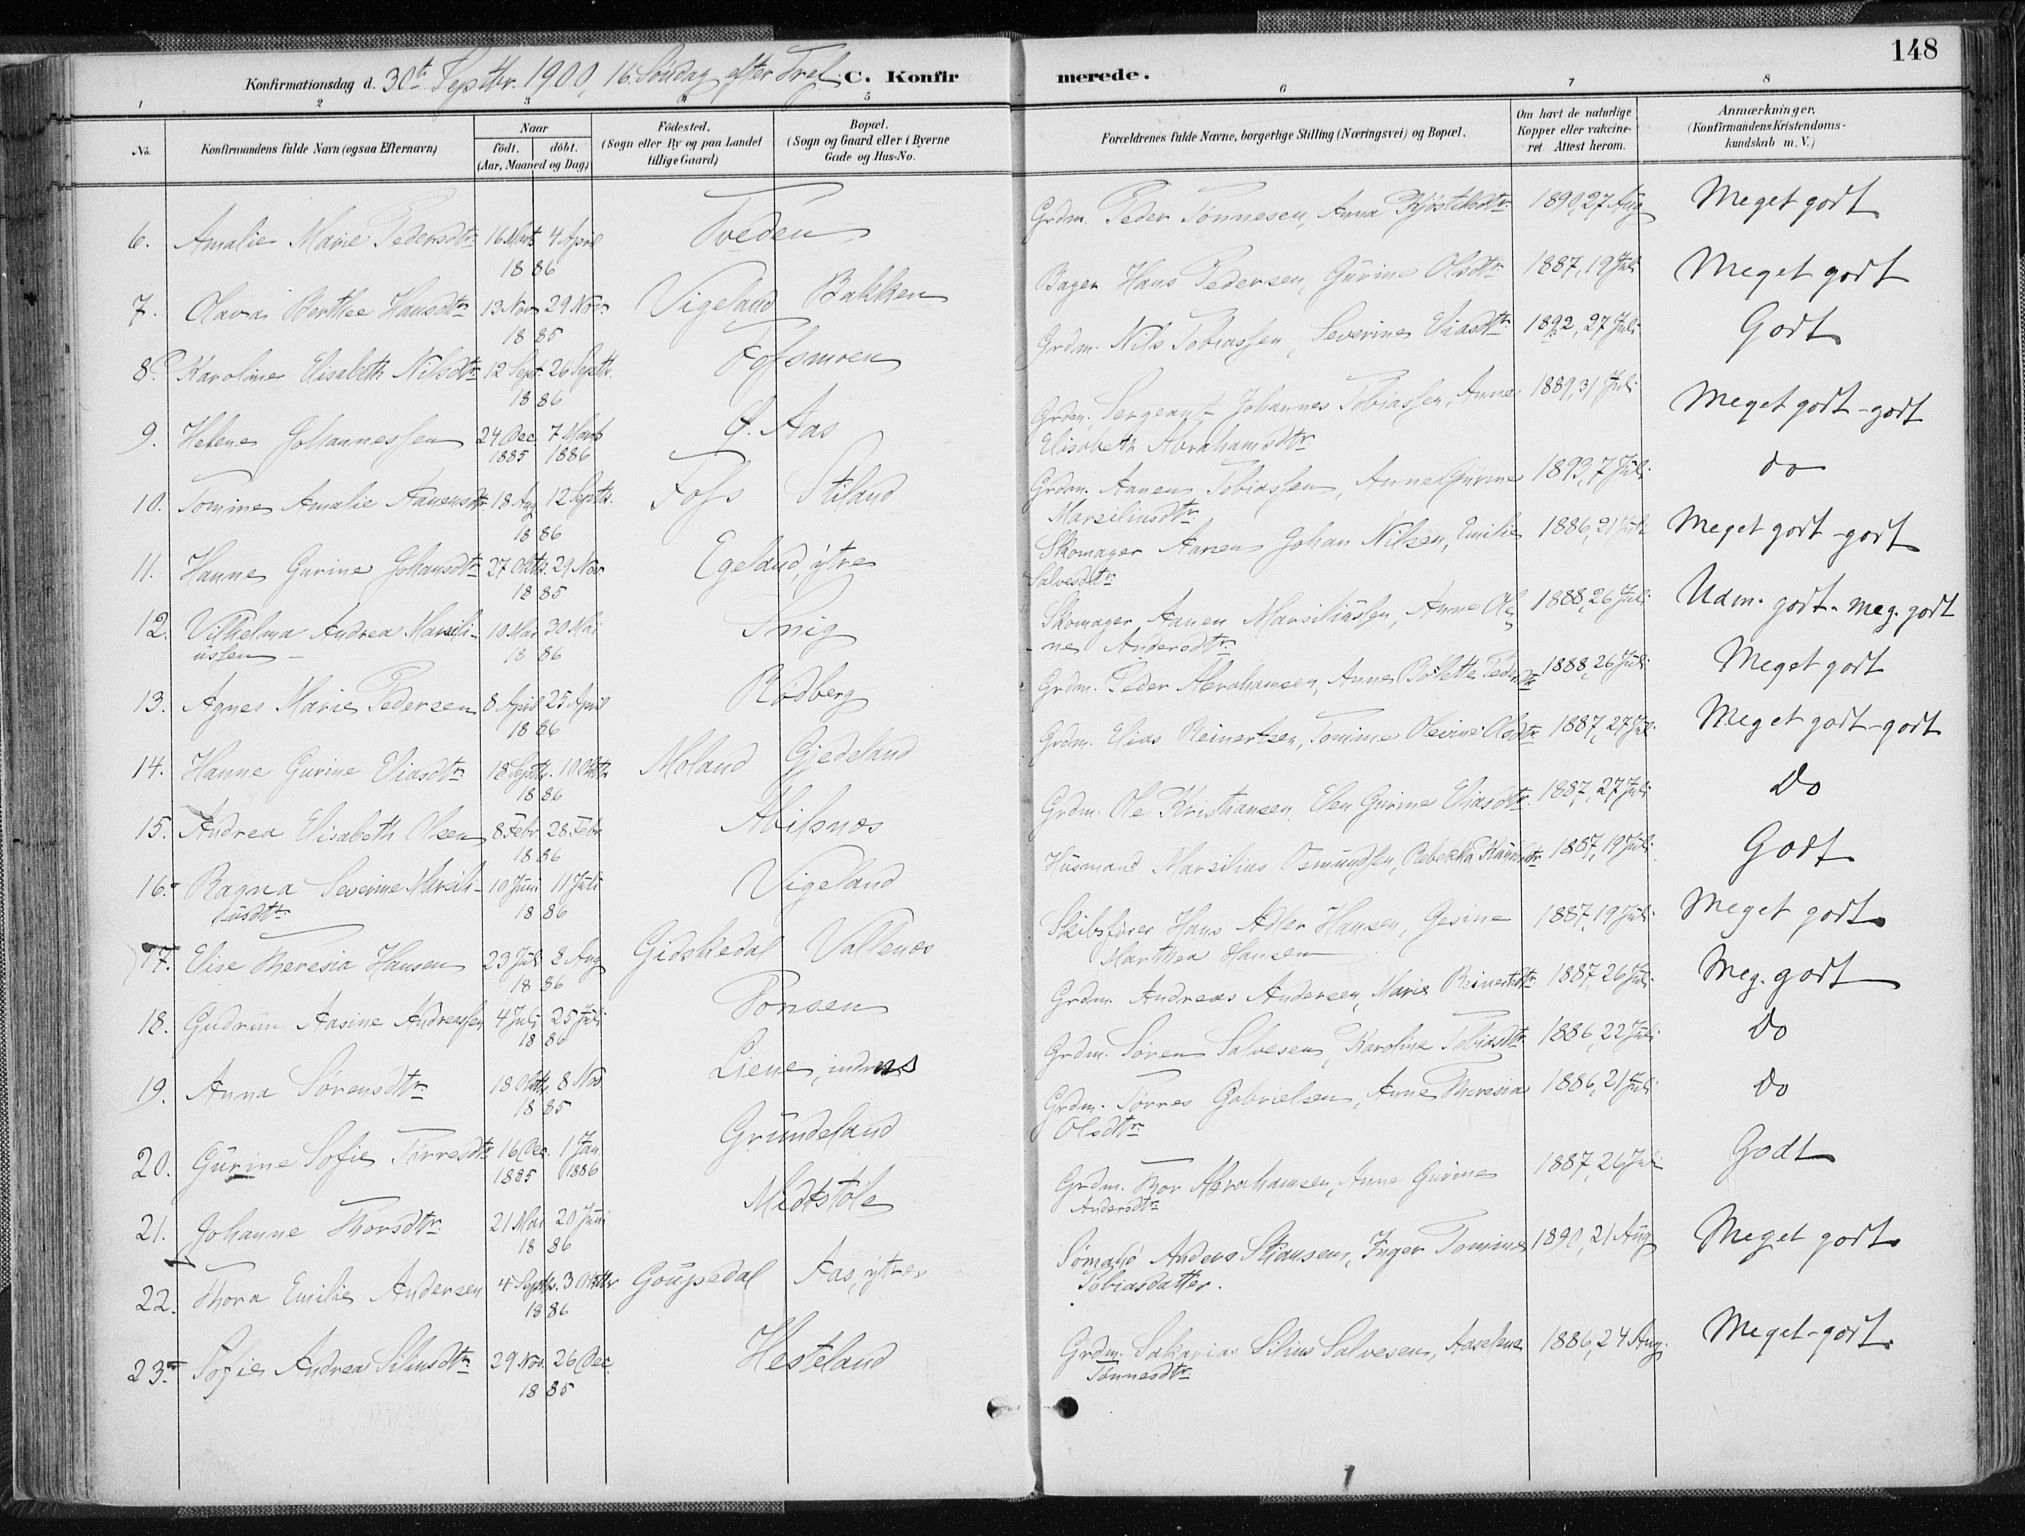 148
Konfirmationsdag d. 30te Septbr. 1900, 16. Søndag efter Tref. C. Konfirmerede.
1 2 3 4 5 6 7 8
No. Konfirmandens fulde Navn (ogsaa Efternavn) Naar født. døbt. (Aar, Maaned og Dag) Fødested. (Sogn eller By og paa Landet tillige Gaard) Bopæl. (Sogn og Gaard eller i Byerne Gade og Hus-No. Forældrenes fulde Navne, borgerlige Stilling (Næringsvei) og Bopæl. Om havt de naturlige Kopper eller vakcineret. Attest herom. Anmærkninger. (Konfirmandens Kristendomskundskab m. V.)
6. Amalie Marie Pedersdtr 16 Marts 4 April 1886 Tveden Grdm. Peder Tønnesen, Anna Kjøstelsdtr 1890, 27 Aug Meget godt
7. Olava Berthe Hansdtr 13 Nov 29 Nov. 1885 Vigeland Bakken Bager Hans Pedersen, Gurine Olsdtr 1887, 19 Juli Meget godt
8. Karoline Elisabeth Nilsdtr 12 Sept. 26 Septb. 1886 Fossmoen Grdm. Nils Tobiassen, Severine Eliasdtr 1892, 27 Juli Godt
9. Helene Johannessen 24 Dec. 1885 7 Marts 1886 Ø. Aas Grdm. Sergeant Johannes Tobiassen, Anne Elisabeth Abrahamsdtr 1889, 31 Juli Meget godt - godt
10. Tomine Amalie Aanensdtr 18 Aug 12 Septb. 1886 Foss Stiland Grdm. Aanen Tobiassen, Anne Gurine Marsiliusdtr 1893, 7 Juli do
11. Hanne Gurine Johansdtr 27 Oktb. 29 Nov 1885 Egeland, ytre Skomager Aanen Johan Nilsen, Emilie Salvesdtr 1886, 21 Juli Meget godt - godt
12. Vilhelma Andrea Marsiliussen 10 Mai 30 Mai 1886 Snig Skomager Aanen Marsiliussen, Anne Oline Andersdtr 1888, 26 Juli Udm. godt - meg. godt
13. Agnes Marie Pedersen 8 April 25 April 1886 Rødberg Grdm. Peder Abrahamsen, Anne Bolette Pedersdtr 1888, 26 Juli Meget godt
14. Hanne Gurine Eliasdtr 18 Septb. 10 Oktb. 1886 Moland Gjedeland Grdm. Elias Reinertsen, Tomine Oleine Olsdtr 1887, 27 Juli Meget godt - godt
15. Andrea Elisabeth Olsen 8 Febr 28 Febr 1886 Abilsnæs Grdm. Ole Kristiansen, Elen Gurine Eliasdtr. 1887, 27 Juli Do
16. Ragna Severine Marsiliusdtr 10 Juni 11 Juli 1886 Vigeland Husmand Marsilius Osmundsen, Rebekka 1887, 19 Juli Godt
17. Elise Theresia Hansen 23 Juli 8 Aug 1886 Gidskedal Vallenes Skibsfører Hans Adler Hansen, Gesine Marthea Hansen 1887, 19 Juli Meget godt
18. Gudrun Aasine Andreassen 4 Juli 25 Juli 1886 Ponsen Grdm. Andreas Andersen, Marie Reinertsdtr 1887, 26 Juli Meg. godt
19. Anna Sørensdtr 18 Oktb. 8 Nov 1885 Liene, indres Grdm. Søren Salvesen, Karoline Tobiasdtr 1886, 22 Juli Do
20. Gurine Sofie Tørresdtr 16 Dec. 1885 1 Jan 1886 Grundeland Grdm. Tørres Gabrielsen, Anne Theresia Olsdtr 1886, 21 Juli Do
21. Johanne Thorsdtr. 21 Mai 20 Juni 1886 Midtstøle Grdm. Thor Abrahamsen, Anne Gurine Andersdtr 1887, 26 Juli Godt
22. Thora Emilie Andersen 4 Septb. 3 Oktbr 1886 Goupedal Aas, ytre Sømand Anders Stiansen, Inger Tomine Tobiasdatter. 1890, 21 Aug Meget godt
23. Sofie Andrea Siliusdtr 29 Nov. 26 Dec. 1885 Hesteland Grdm. Sakarias Silius Salvesen, Aaselene Tønnesdtr 1886, 24 Aug. Meget-godt